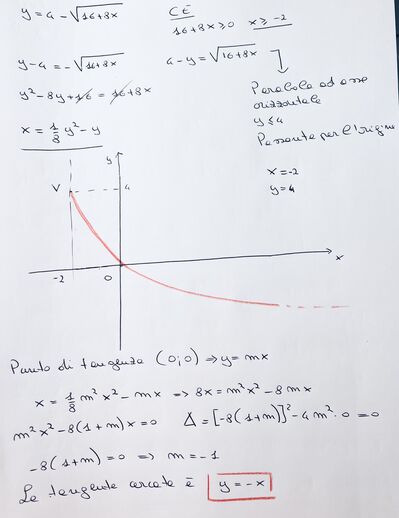 y = 4 - √16+8x
C.E.
16+8x ≥ 0 x ≥ -2
y-4 = -√16+8x
4-y = √16+8x
y² - 8y + 16 = 16+8x
x = 1/8 y² - y
Parabola ad asse
orizzontale
y ≤ 4
Passante per l'origine
x = -2
y = 4
y
V
4
-2
0
x
Punto di tangenza (0;0) ⇒ y = mx
x = 1/8 m²x² - mx ⇒ 8x = m²x² - 8mx
m²x² - 8(1+m)x = 0 Δ = [-8(1+m)]² - 4m²·0 = 0
-8(1+m) = 0 ⇒ m = -1
La tangente cercata è y = -x